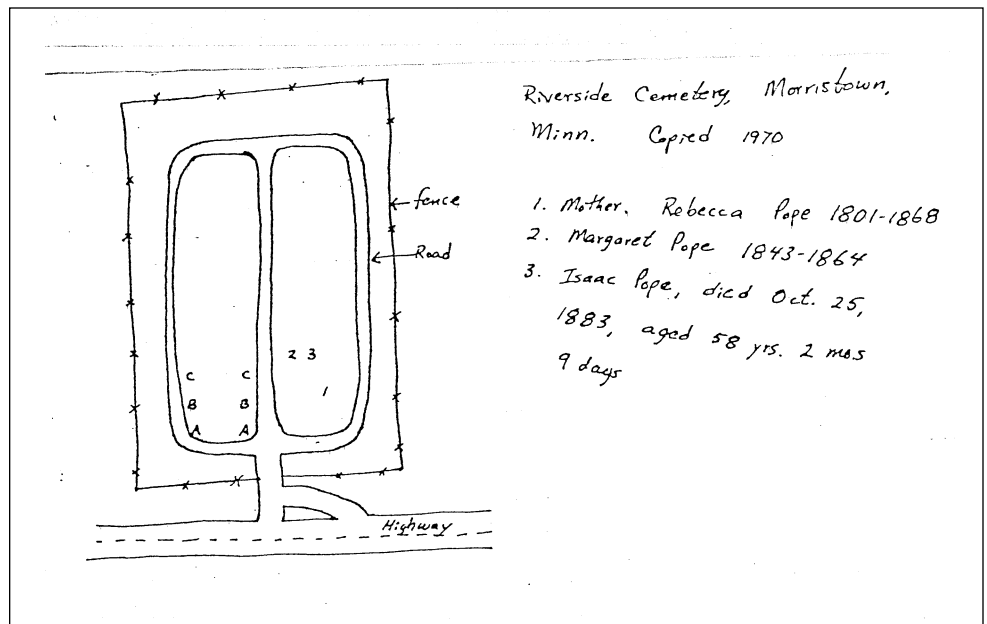 Riverside Cemetery, Morristown,
Minn. Copied 1970
fence
Road
1. Mother. Rebecca Pope 1801-1868
2. Margaret Pope 1843-1864
3. Isaac Pope, died Oct. 25,
1883, aged 58 yrs. 2 mos
9 days
2 3
C C
1
B B
A A
Highway